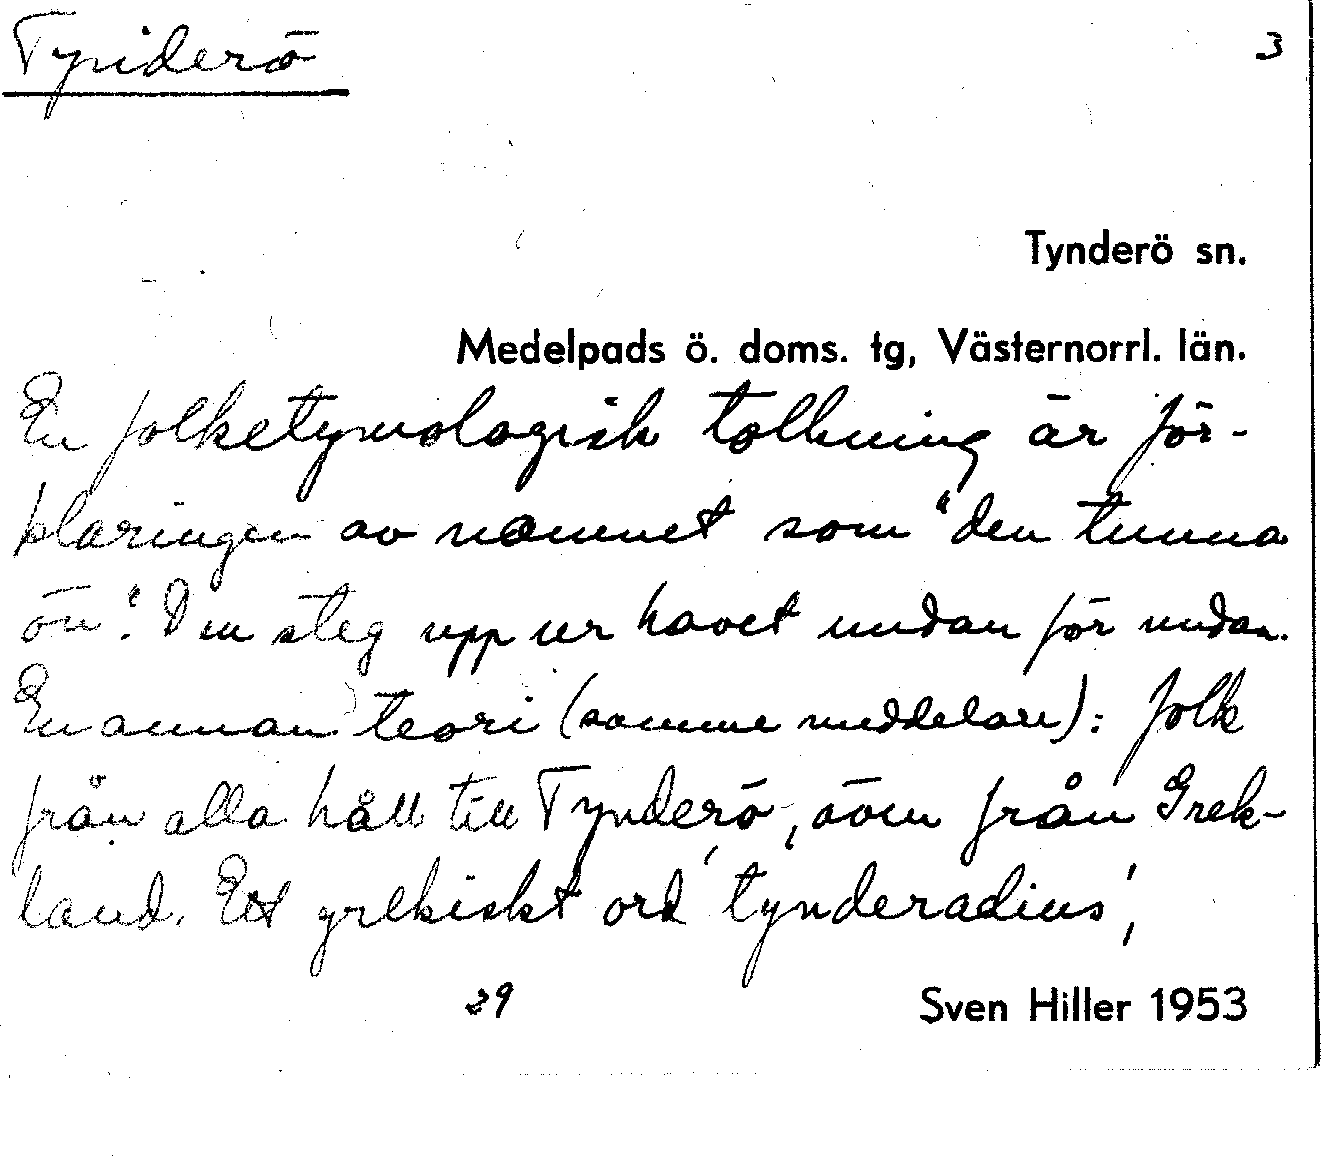 Tynderö
3
Tynderö sn.
Medelpads ö. doms. tg, Västernorrl. län.
En folketymologisk tolkning är för-
klaringen av namnet som "den tunna
ön". Den steg upp ur havet undan för undan.
En annan teori (samme meddelare): folk
från alla håll till Tynderö, även från Grek-
land. Ett grekiskt ord 'tynderadius',
39
Sven Hiller 1953